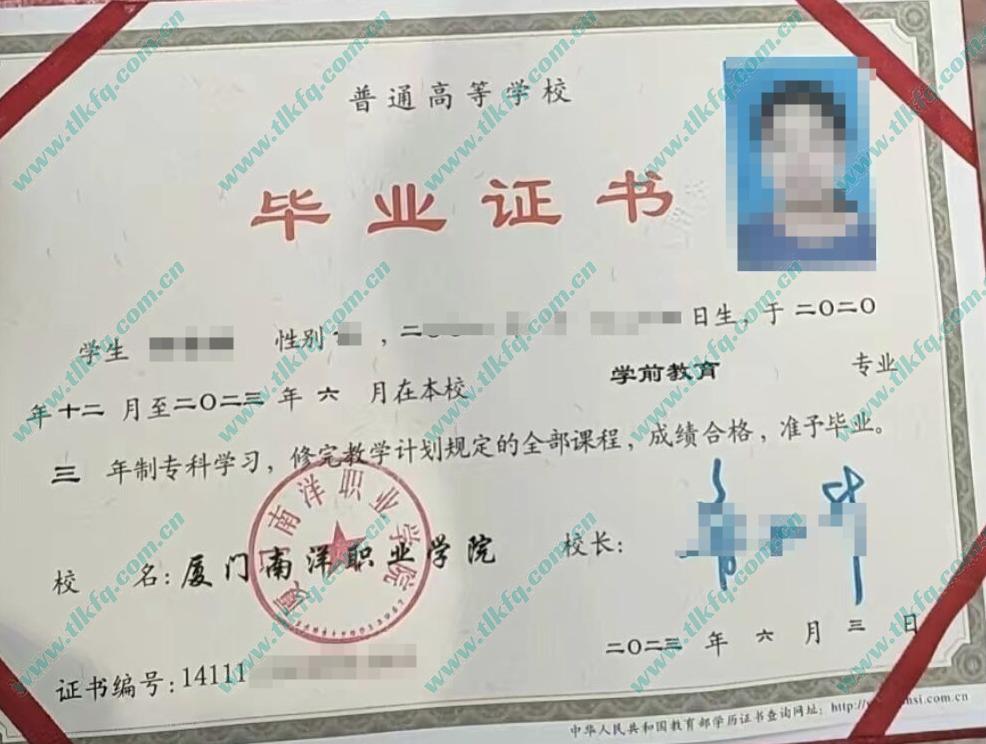 普通高等学校
毕业证书
学生 性别 , 二〇 日生, 于 二〇二〇
年 十二 月至 二〇二三 年 六 月在本校 学前教育 专业
三 年制专科学习, 修完教学计划规定的全部课程, 成绩合格, 准予毕业。
厦门南洋职业学院
校 名: 厦门南洋职业学院 校长:
二〇二三 年 六 月 三 日
证书编号: 14111
中华人民共和国教育部学历证书查询网址: http:// .com.cn
www.tlkfq.com.cn